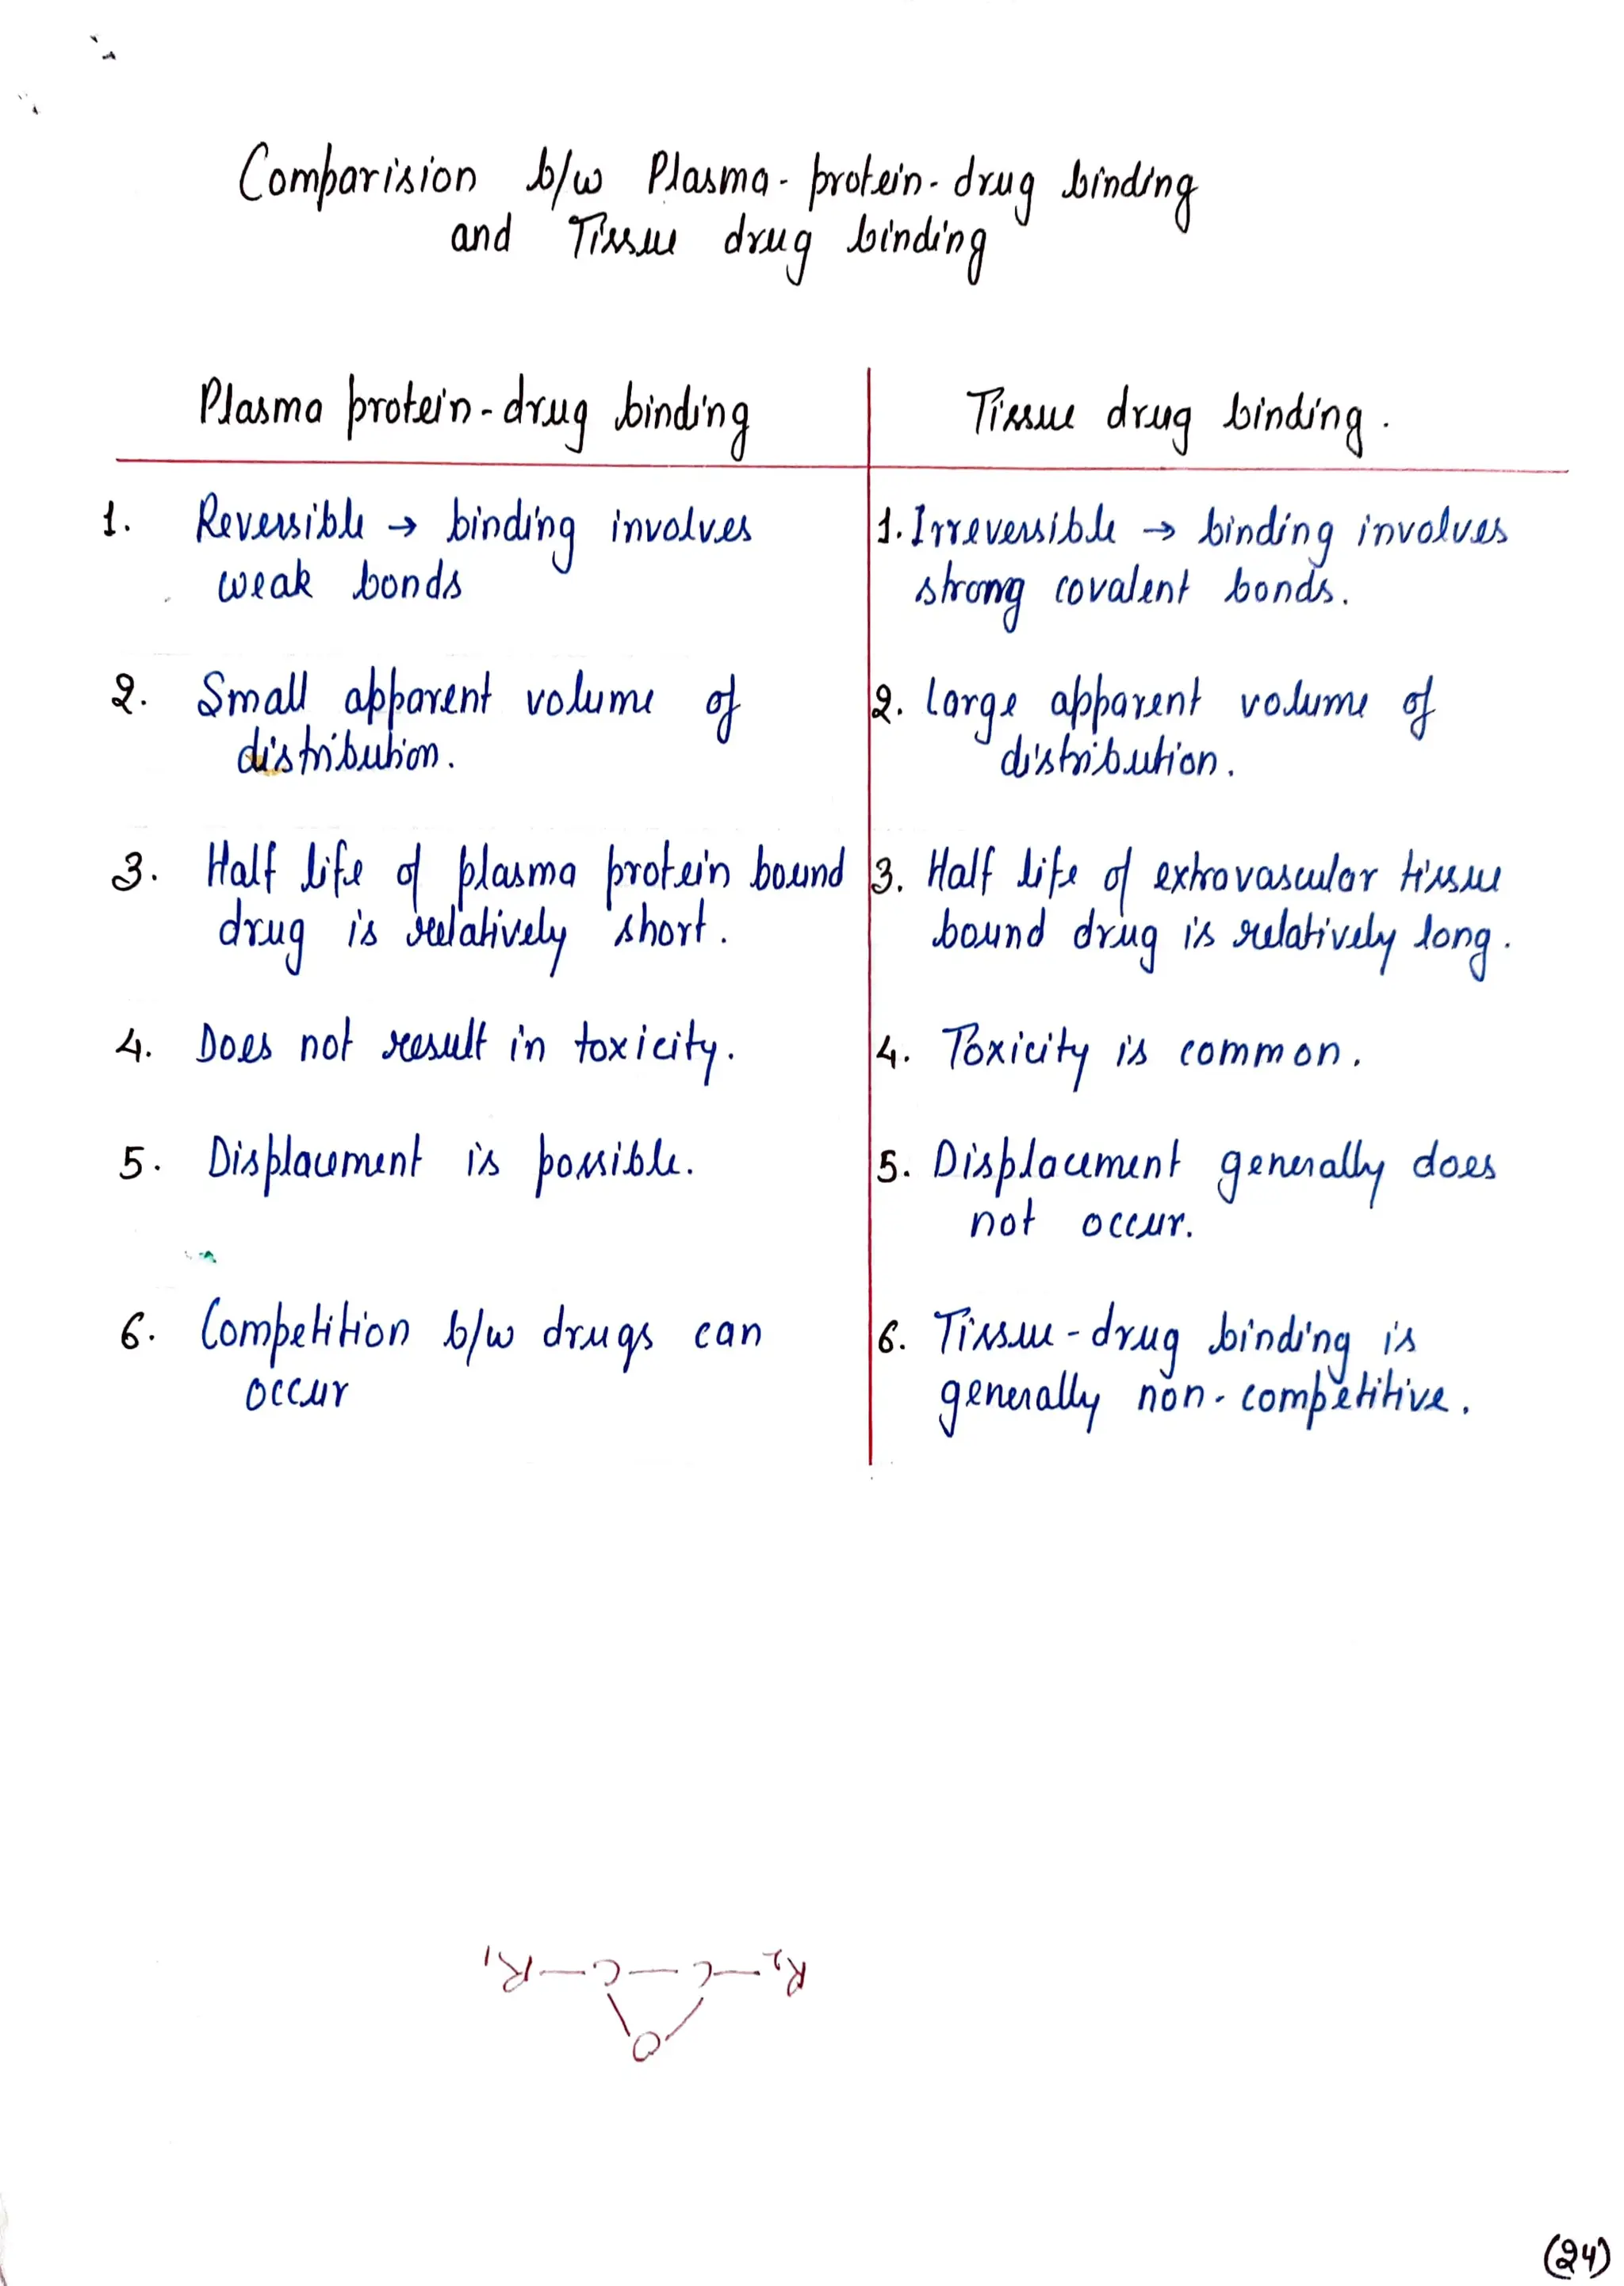 Comparision b/w Plasma-protein-drug binding
and Tissue drug binding
Plasma protein-drug binding
Tissue drug binding.
1. Reversible → binding involves
weak bonds
1. Irreversible → binding involves
strong covalent bonds.
2. Small apparent volume of
distribution.
2. Large apparent volume of
distribution.
3. Half life of plasma protein bound
drug is relatively short.
3. Half life of extravascular tissue
bound drug is relatively long.
4. Does not result in toxicity.
4. Toxicity is common.
5. Displacement is possible.
5. Displacement generally does
not occur.
6. Competition b/w drugs can
occur
6. Tissue-drug binding is
generally non-competitive.
R₁—C—C—R₂
O
(24)